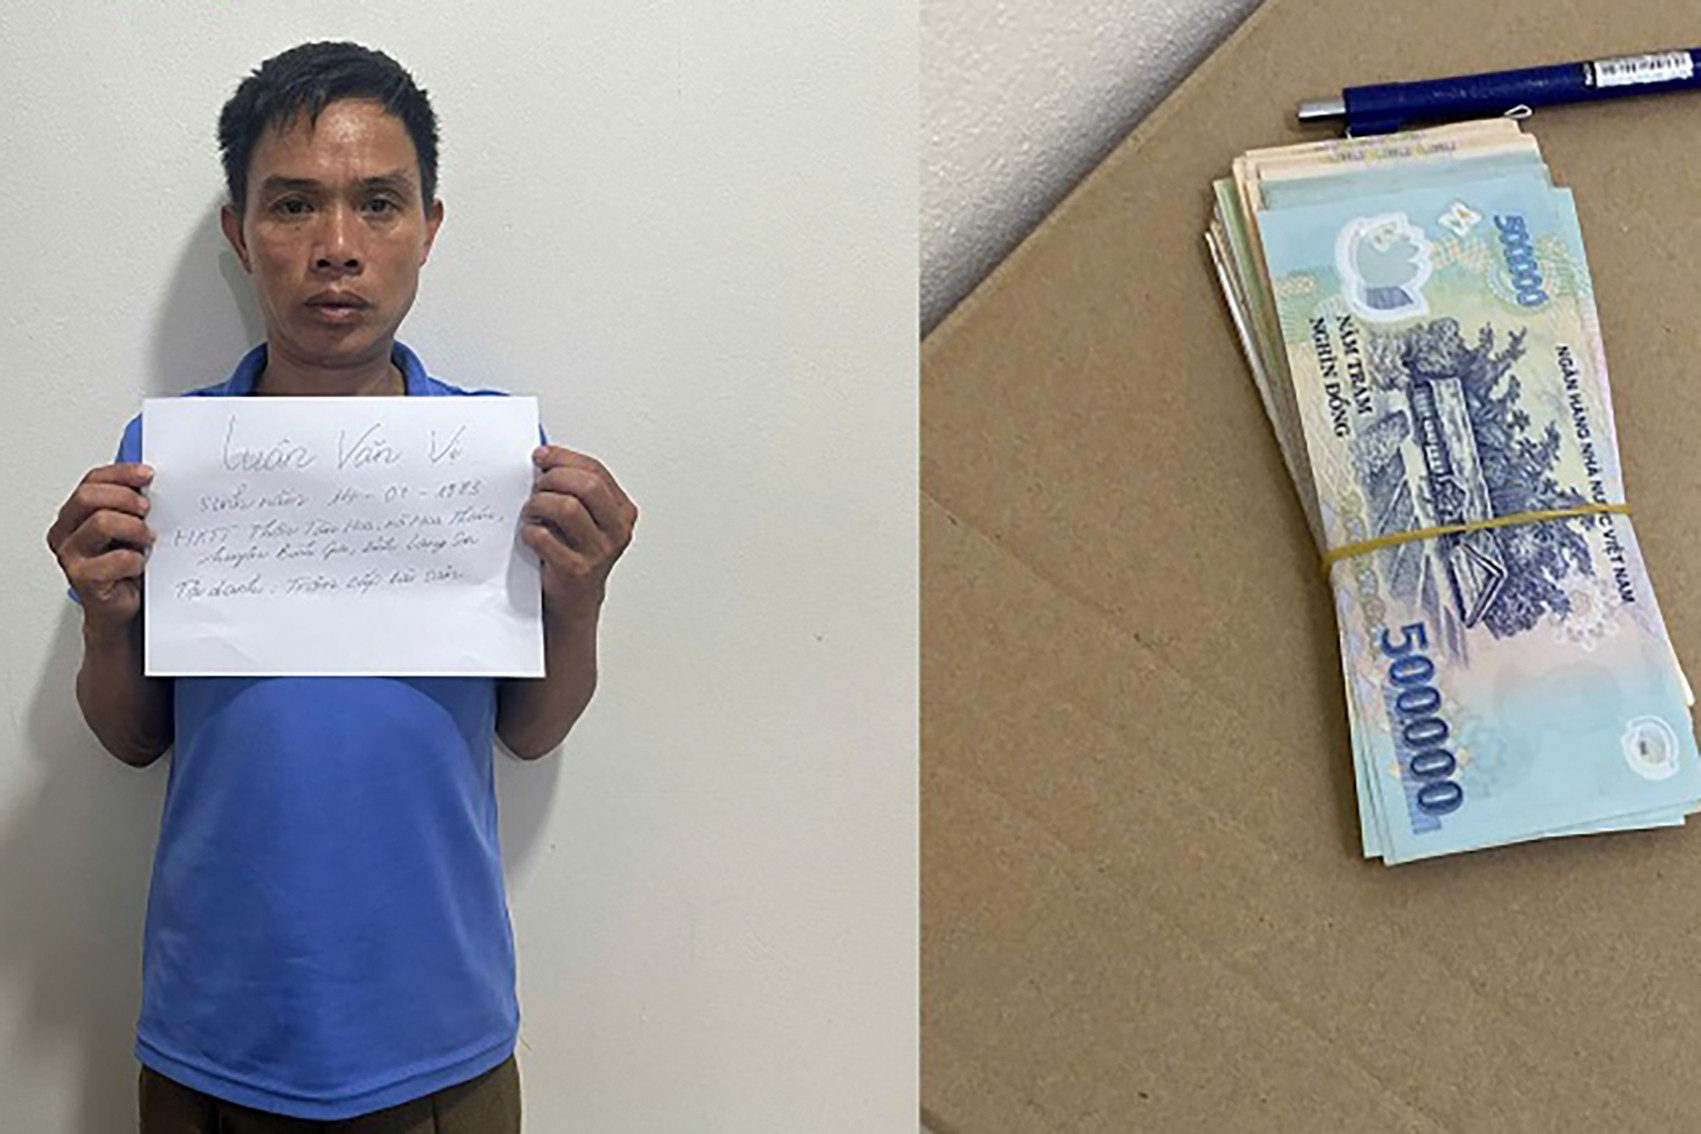 Luân Văn Vị
Sinh năm 14 - 07 - 1983
HKTT Thôn Tân Hoa, xã Hoa Thám,
huyện Bình Gia, tỉnh Lạng Sơn
Tội danh: Trộm cắp tài sản
500000
NĂM TRĂM
NGHÌN ĐỒNG
NGÂN HÀNG NHÀ NƯỚC VIỆT NAM
500000